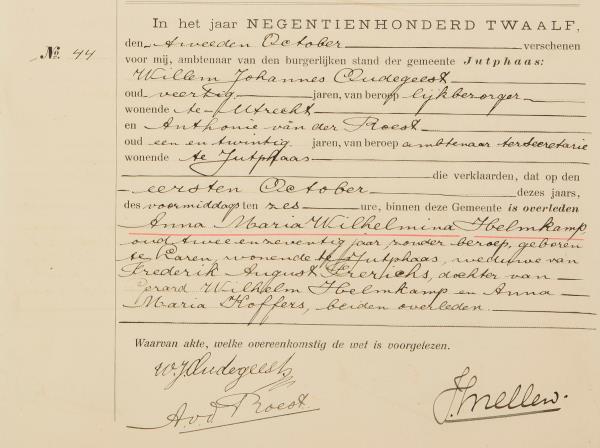 In het jaar NEGENTIENHONDERD TWAALF,
No. 44
den tweeden October verschenen
voor mij, ambtenaar van den burgerlijken stand der gemeente Jutphaas:
Willem Johannes Oudegeest
oud veertig jaren, van beroep lijkbezorger
wonende te Utrecht
en Anthonie van der Roest
oud een en twintig jaren, van beroep ambtenaar ter secretarie
wonende te Jutphaas
die verklaarden, dat op den
eersten October dezes jaars,
des voormiddags ten zes ure, binnen deze Gemeente is overleden
Anna Maria Wilhelmina Helmkamp
oud twee en zeventig jaar, zonder beroep, geboren
te Laren, wonende te Jutphaas, weduwe van
Frederik August Frerichs, dochter van
Gerard Wilhelm Helmkamp en Anna
Maria Koffers, beiden overleden.
Waarvan akte, welke overeenkomstig de wet is voorgelezen.
W J Oudegeest
A. v d Roest